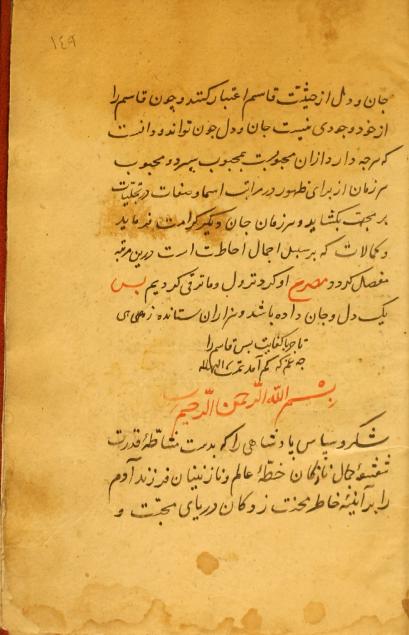 ۱۴۹
جان و دل از حیثیت قاسم اعتبار کنند و چون قاسم را
از خود وجودی نیست جان و دل چون تواند و دانست
که هرچه دارد ازان محبوبست بمحبوب سپرد و محبوب
هر زمان از برای ظهور در مراتب اسما و صفات در تجلیات
بر محب بکشاید و هر زمان جان دیگر کرامت فرماید
و کمالات که بر سبیل اجمال احاطت ارت درین مرتبه
مفصل کردد مصرع او کرد نزول و ما ترقی کردیم پس
یک دل و جان داده باشد و هزاران ستانده زهی
تا چه با کفایت بس قاسم را
چه غم که کم آمد تمت
بسم الله الرحمن الرحیم
شکر و سپاس پادشاهی را که بدست مشاطهٔ قدرت
بنفشهٔ خال نازکان خطهٔ عالم و نازنینان فرزند آدم
را بر آئینهٔ خاطر محنت زدکان دریای محبت و